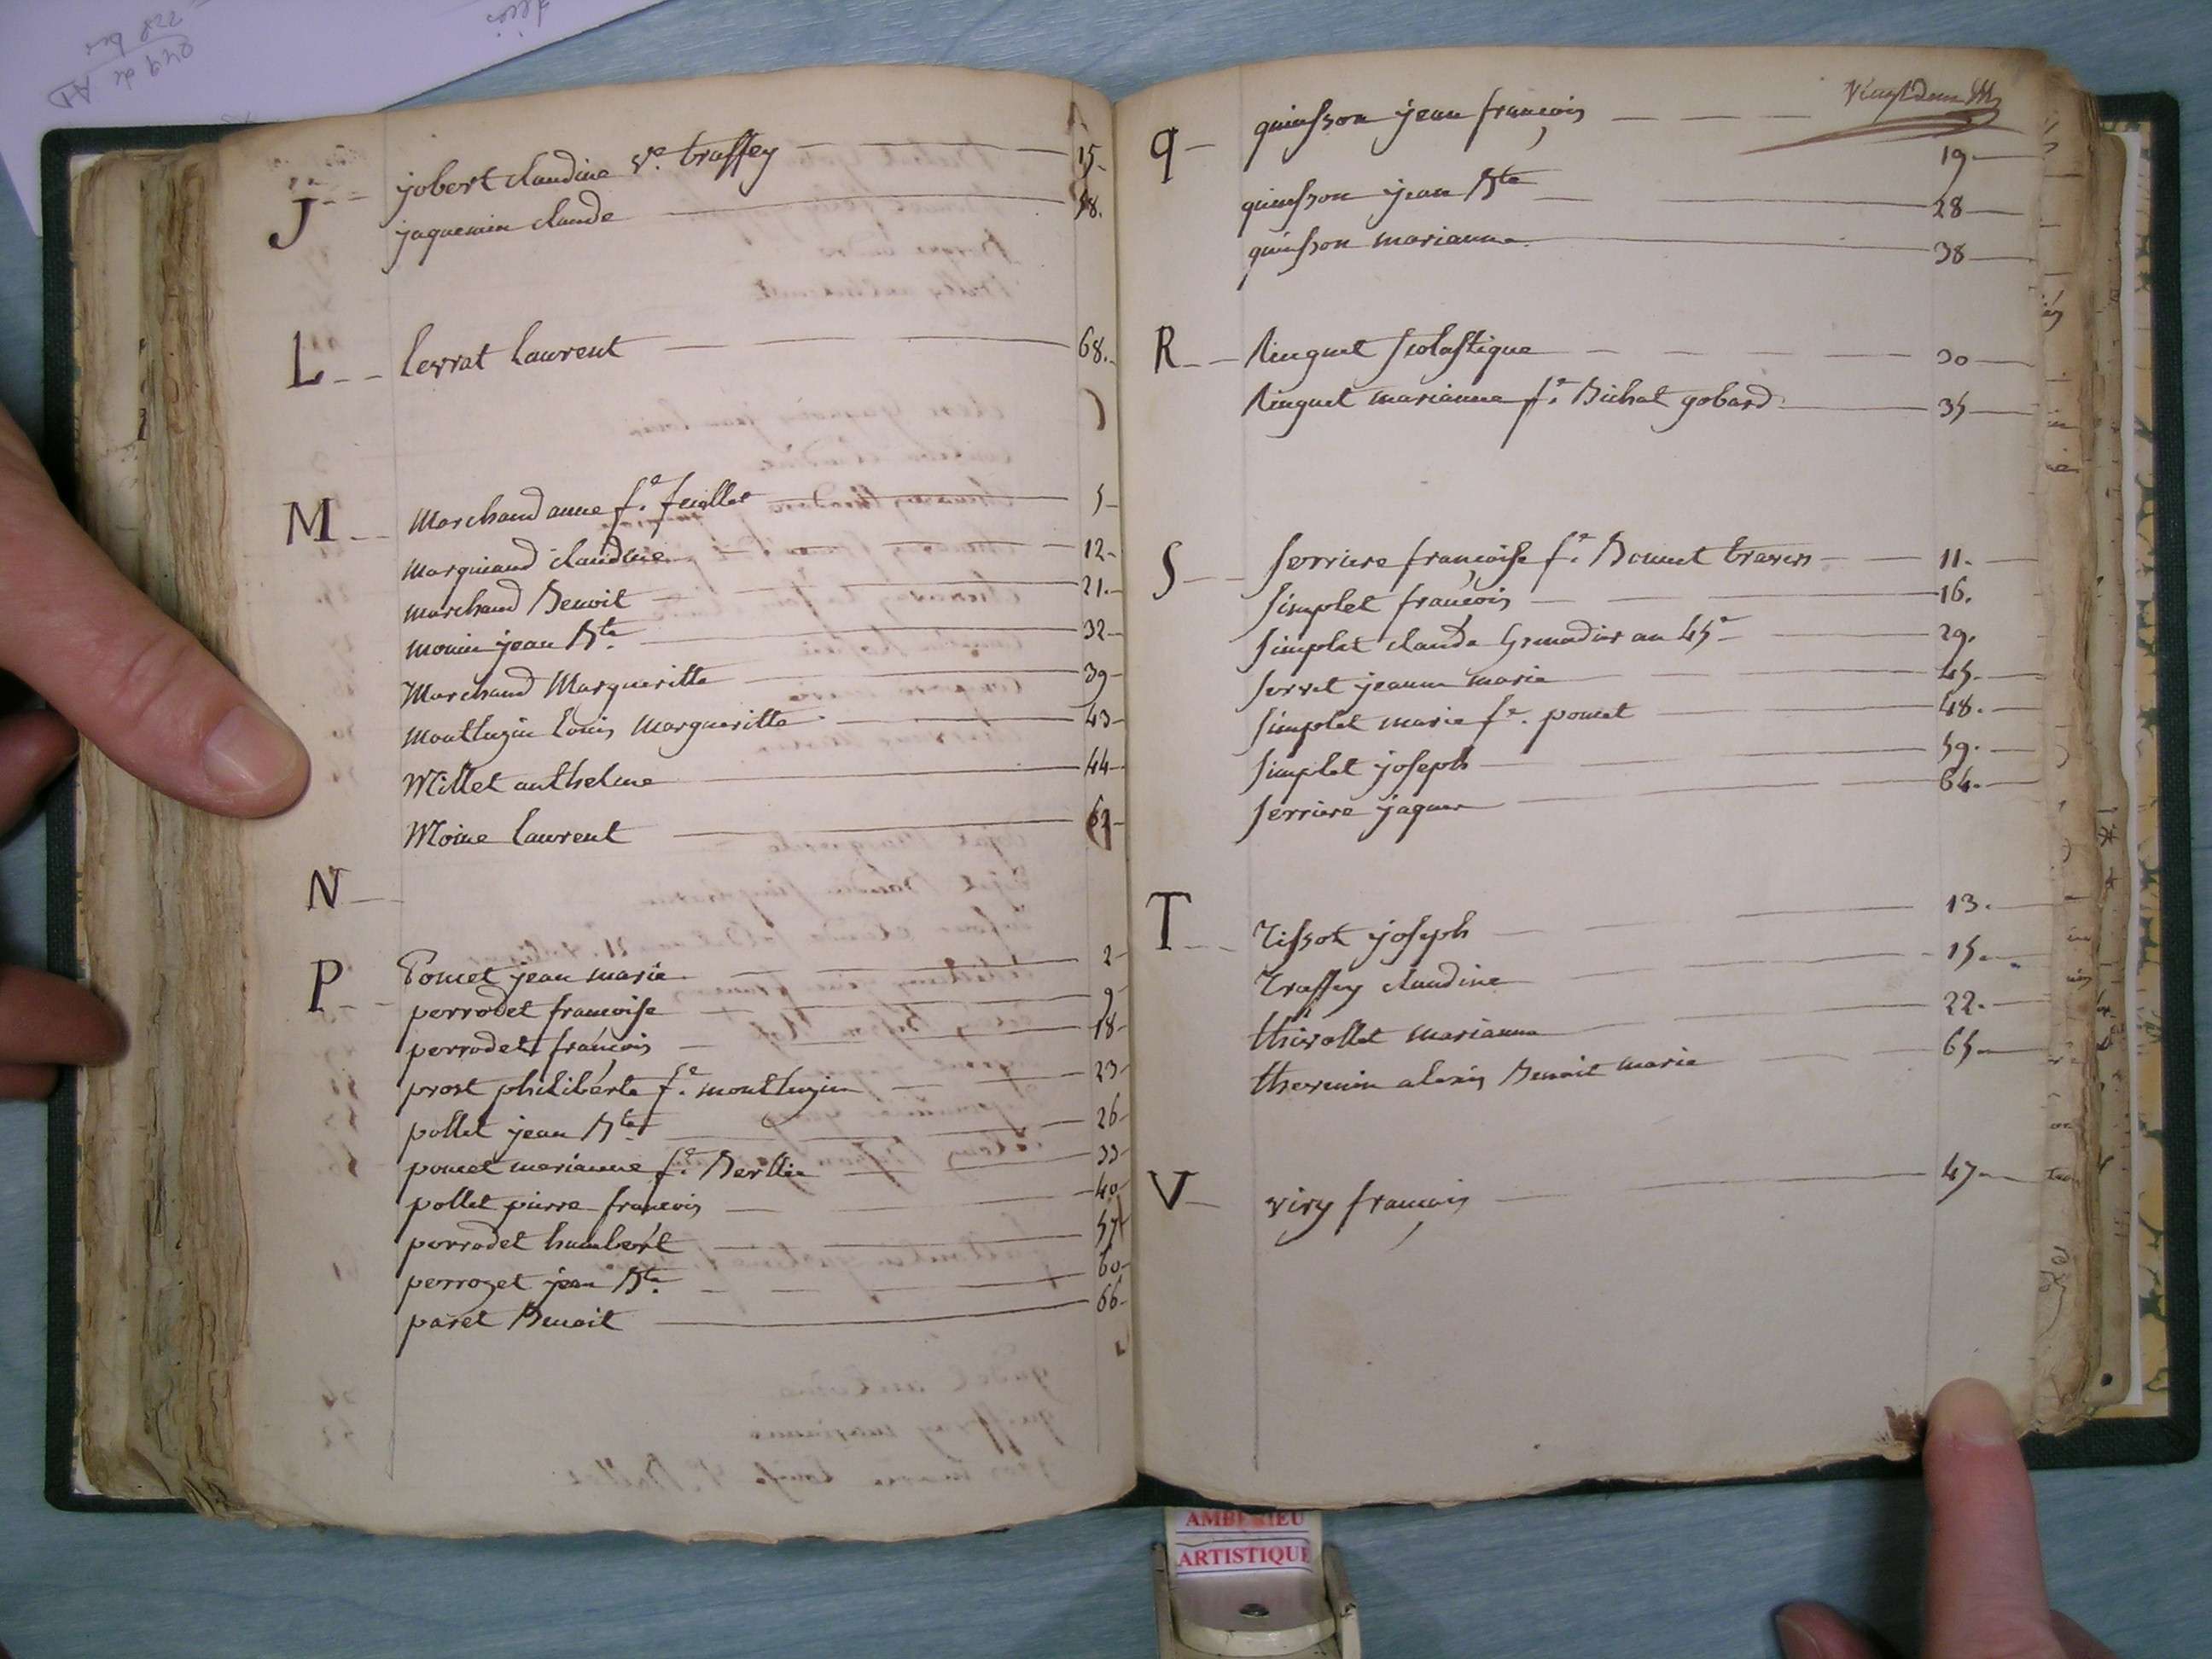 J -- jobert claudine Ve. traffey 15-
jaquemin claude 58.
L -- Lerrat Laurent 68.
M -- Marchand anne fe. feuillet 5-
marguiand claudine 12-
marchand Benoit 21.
monin jean Bte. 32-
Marchand Margueritte 39-
montluzin Louis Margueritte 43-
Millet anthelme 44-
Moine Laurent
N --
P -- Poncet jean marie 2-
perrodet francoise 9-
perrodet françois 18-
prost philiberte fe. montluzin 23-
pollet jean Bte. 26-
poncet marianne fe. Berllie 33-
pollet pierre françois 40-
perrodet humbert 57
perrozet jean Bte. 60-
paret Benoit 66-
vingt deux
q - quinsson jean françois 19-
quinsson jean Bte 28
quinsson marianne 38
R -- Ringuet scolastique 30
Ringuet marianne fe. Bichat gobard 35
S -- serriere françoise fe. Bonnet travers 11.
simplet françois 16.
simplet claude Grenadier au 45e 29.
servet jeanne marie 45.
simplet marie fe. poncet 48.
simplet joseph 59.
serriere jaques 64.
T -- Tissot joseph 13.
Traffey claudine 15.
thivollet marianne 22.
thevenin alexis Benoit marie 65
V - viry françois 47
AMBERIEU
ARTISTIQUE